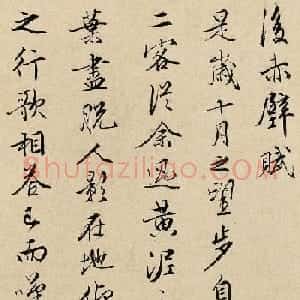 後赤壁賦
是歲十月之望步自
二客從余過黃泥
葉盡脫人影在地仰
之行歌相答已而嘆
Shufaziliao.com